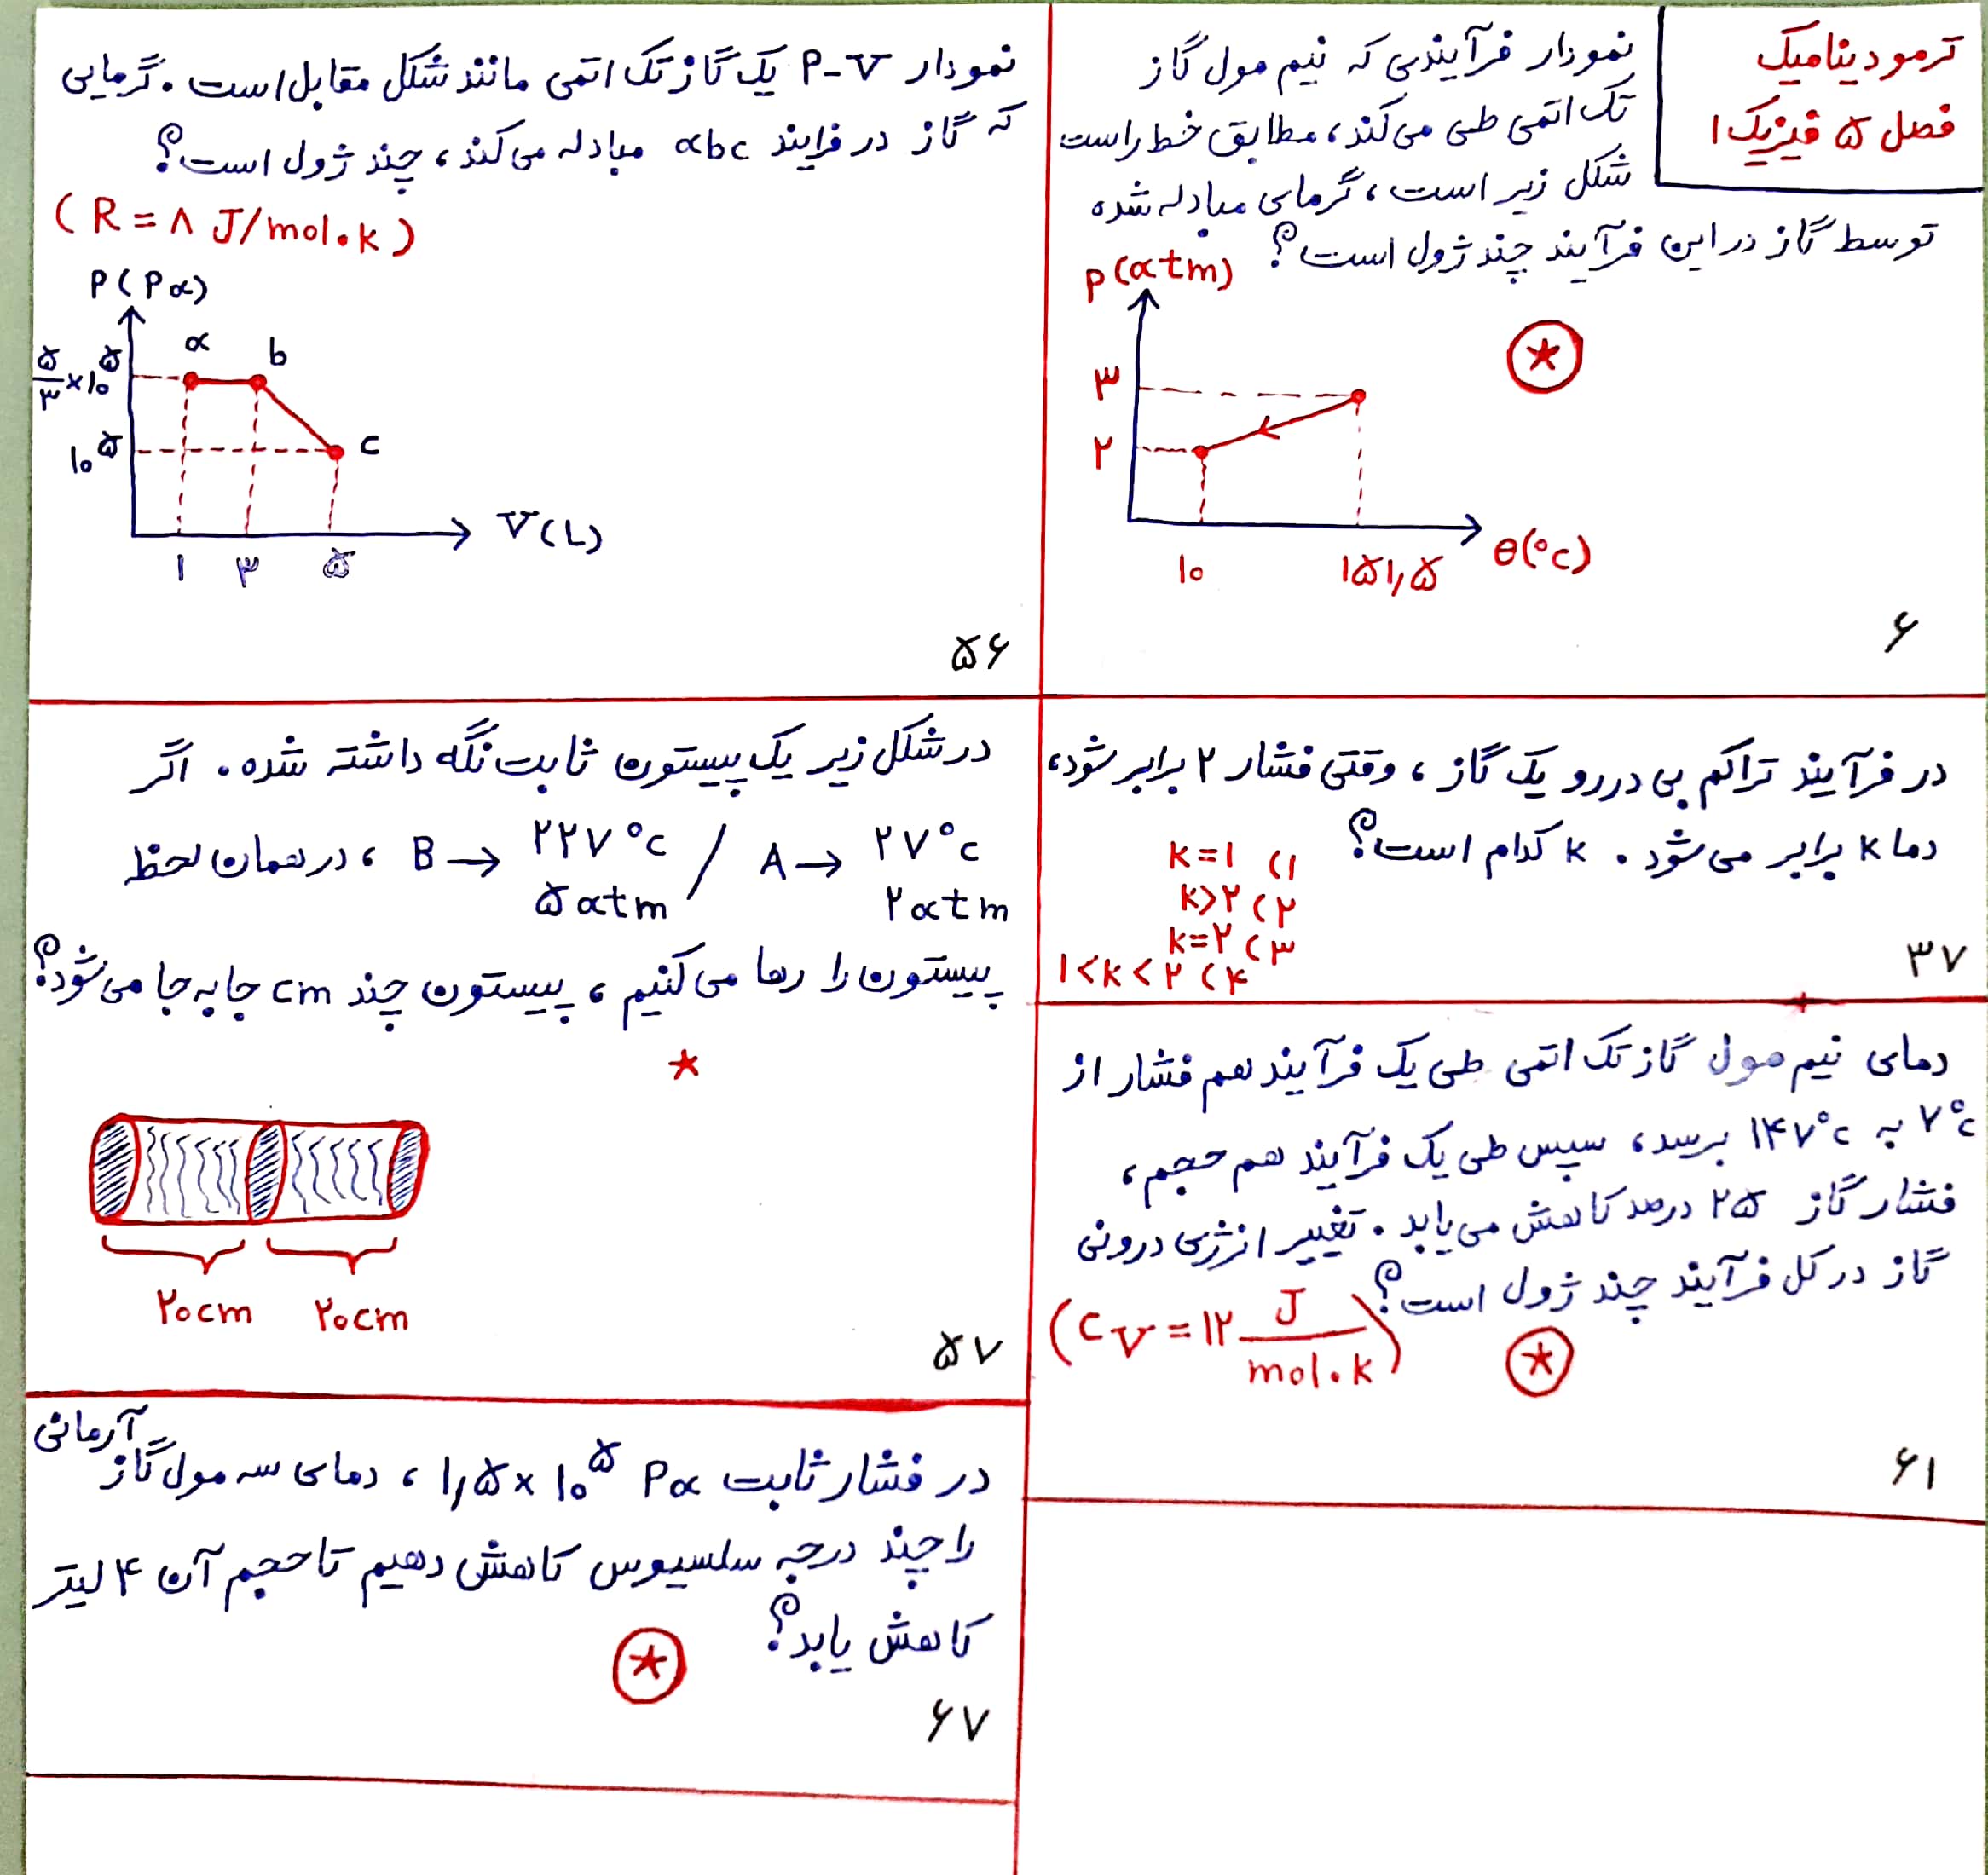 ترمودینامیک
فصل ۵ فیزیک ۱
نمودار فرآیندی که نیم مول گاز
تک اتمی طی می‌کند، مطابق خط راست
شکل زیر است، گرمای مبادله شده
توسط گاز در این فرآیند چند ژول است؟
P(atm)
۳
۲
۱۰
۱۵۱٫۵
θ(°C)
۶
در فرآیند تراکم بی دررو یک گاز، وقتی فشار ۲ برابر شود،
دما k برابر می‌شود. k کدام است؟
۱) k=۱
۲) k>۲
۳) k=۲
۴) ۱<k<۲
۳۷
دمای نیم مول گاز تک اتمی طی یک فرآیند هم فشار از
۷°C به ۱۴۷°C برسد، سپس طی یک فرآیند هم حجم،
فشار گاز ۲۵ درصد کاهش می‌یابد. تغییر انرژی درونی
گاز در کل فرآیند چند ژول است؟
(CV = ۱۲ J/mol.k)
۶۱
نمودار P-V یک گاز تک اتمی مانند شکل مقابل است. گرمایی
که گاز در فرایند abc مبادله می‌کند، چند ژول است؟
(R = ۸ J/mol.k)
P(Pa)
a
b
۵/۳ × ۱۰^۵
۱۰^۵
c
V(L)
۱ ۳ ۵
۵۶
در شکل زیر یک پیستون ثابت نگه داشته شده. اگر
A → ۲۷°C ۲atm / B → ۲۲۷°C ۵atm ، در همان لحظ
پیستون را رها می‌کنیم، پیستون چند cm جا به جا می‌شود؟
۲۰cm ۲۰cm
۵۷
در فشار ثابت ۱٫۵ × ۱۰^۵ Pa ، دمای سه مول گاز آرمانی
را چند درجه سلسیوس کاهش دهیم تا حجم آن ۴ لیتر
کاهش یابد؟
۶۷